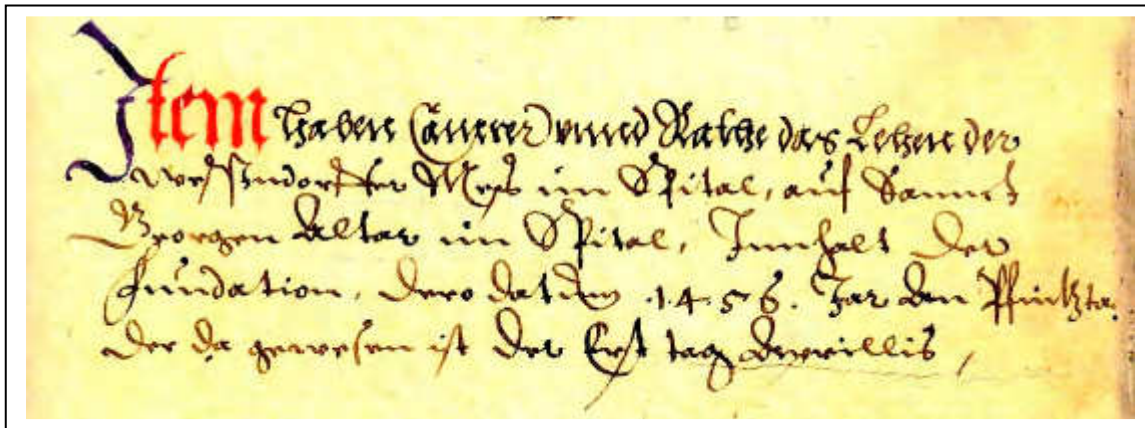 Item haben Camerer unnd Rathe das Lehen der
Mess im Spital, auf Sannct
Georgen Altar im Spital, Innhalt der
Fundation, dero datum 1456. Jar den Pfintzta
der da gewesen ist der Erst tag Apprillis,